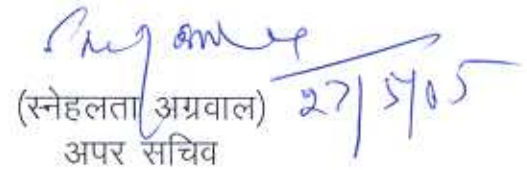 27/5/05
(स्नेहलता अग्रवाल)
अपर सचिव